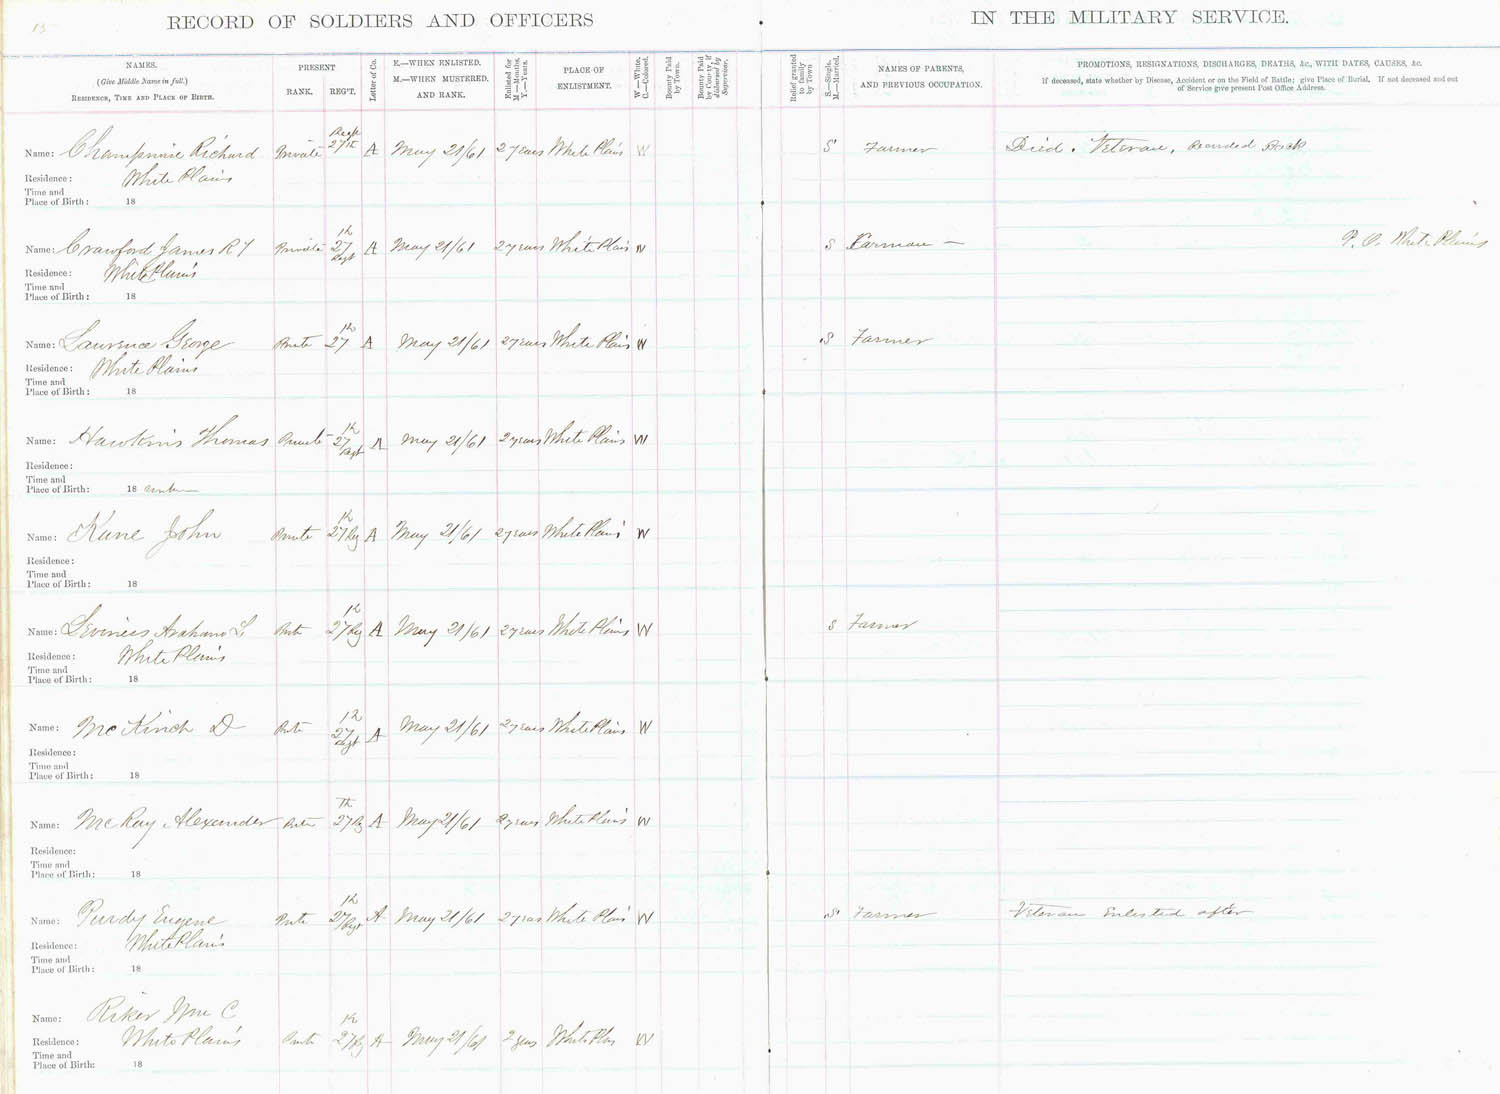 15
RECORD OF SOLDIERS AND OFFICERS IN THE MILITARY SERVICE.
NAMES.
(Give Middle Name in full.)
RESIDENCE, TIME AND PLACE OF BIRTH.
PRESENT
RANK. REG'T.
Letter of Co.
E.—WHEN ENLISTED.
M.—WHEN MUSTERED.
AND RANK.
Enlisted for
M.—Months.
Y.—Years.
PLACE OF
ENLISTMENT.
W.—White.
C.—Colored.
Bounty Paid
by Town.
Bounty Paid
by County, if
disbursed by
Supervisor.
Relief granted
to family
by Town
S.—Single.
M.—Married.
NAMES OF PARENTS,
AND PREVIOUS OCCUPATION.
PROMOTIONS, RESIGNATIONS, DISCHARGES, DEATHS, &c., WITH DATES, CAUSES, &c.
If deceased, state whether by Disease, Accident or on the Field of Battle; give Place of Burial. If not deceased and out
of Service give present Post Office Address.
Name: Richard Private 27th A May 21/61 2 years White Plains W S Farmer Died. Veteran,
Residence: White Plains
Time and
Place of Birth: 18
Name: Crawford James R Private 27th Regt A May 21/61 2 years White Plains W S Farmer — P. O. White Plains
Residence: White Plains
Time and
Place of Birth: 18
Name: Laurence George Private 27th A May 21/61 2 years White Plains W S Farmer
Residence: White Plains
Time and
Place of Birth: 18
Name: Hawkins Thomas Private 27th Regt A May 21/61 2 years White Plains W
Residence:
Time and
Place of Birth: 18
Name: Kane John Private 27th Reg A May 21/61 2 years White Plains W
Residence:
Time and
Place of Birth: 18
Name: 27th Reg A May 21/61 2 years White Plains W S Farmer
Residence: White Plains
Time and
Place of Birth: 18
Name: McKinch D 27th Regt A May 21/61 2 years White Plains W
Residence:
Time and
Place of Birth: 18
Name: McRay Alexander 27th Reg A May 21/61 2 years White Plains W
Residence:
Time and
Place of Birth: 18
Name: Purdy Eugene 27th Regt A May 21/61 2 years White Plains W S Farmer Veteran Enlisted after
Residence: White Plains
Time and
Place of Birth: 18
Name: Riker Wm C
Residence: White Plains 27th Reg A May 21/61 2 years White Plns W
Time and
Place of Birth: 18